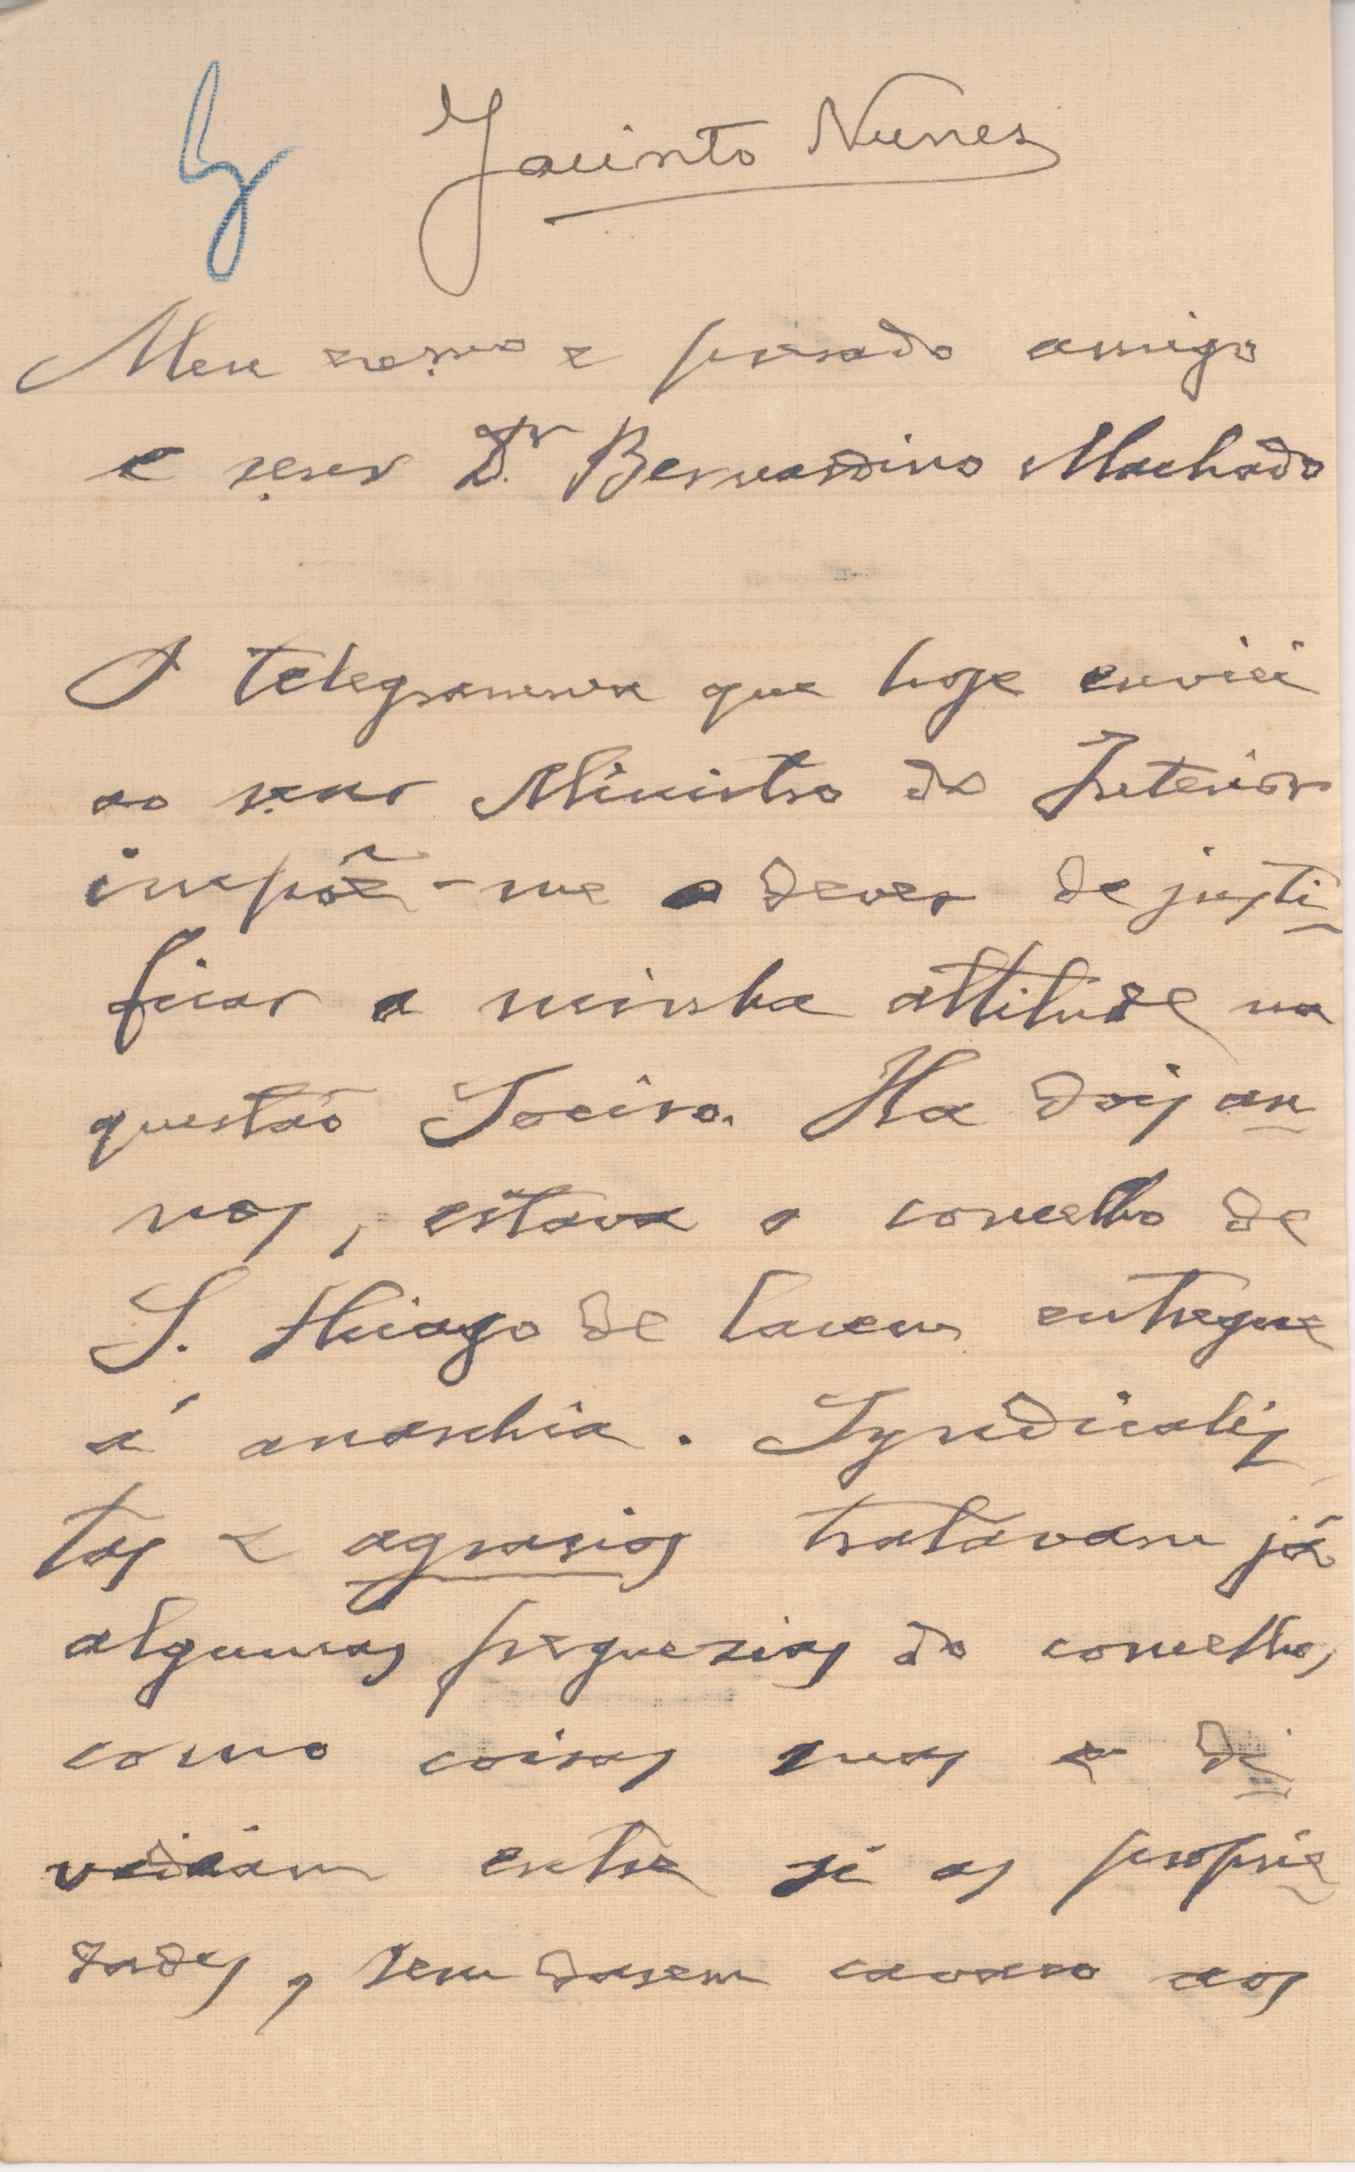 Jacinto Nunes
Meu exmo e presado amigo
e senr Dr. Bernardino Machado
O telegramma que hoje enviei
ao senr Ministro do Interior
impõe-me o dever de justi-
ficar a minha attitude na
questão Soeiro. Ha dois an-
nos, estava o concelho de
S. Thiago de Cacem entregue
á anarchia. Syndicalis
tas e agrarios tratavam já
algumas freguezias do concelho,
como coisas suas e di-
vidiam entre si as proprie-
dades, sem darem cavaco aos